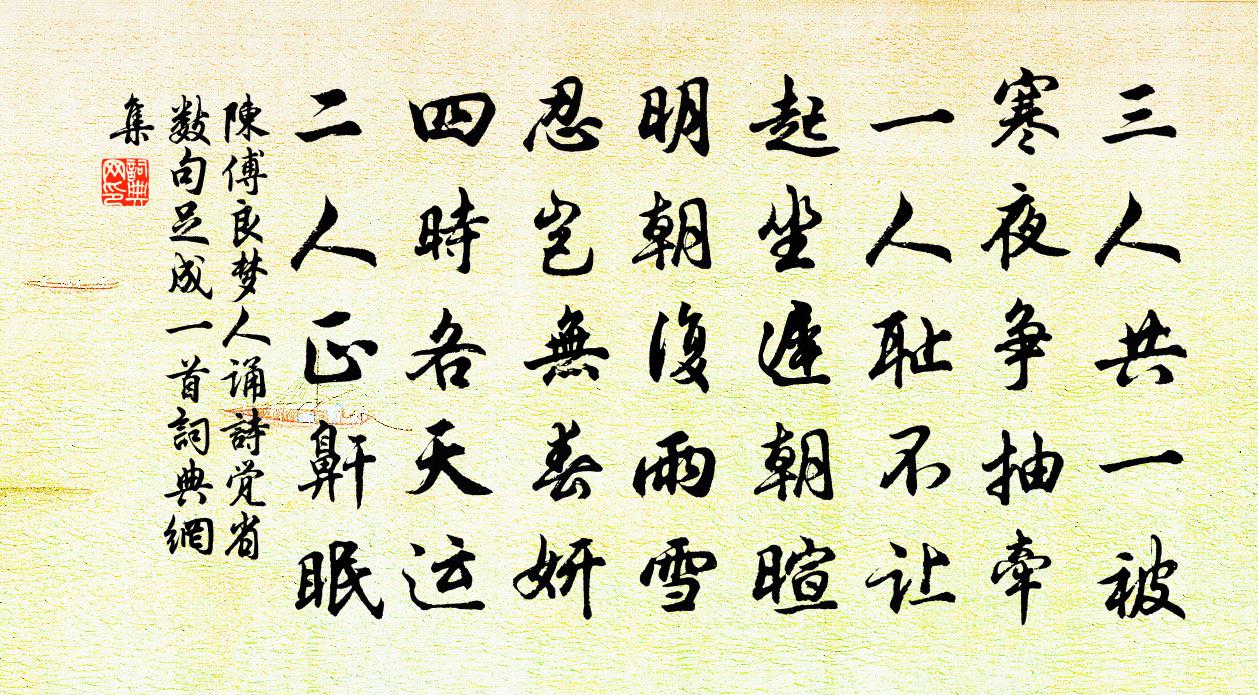 三人共一被
寒夜争抽牵
一人耻不让
起坐遲朝暄
明朝復雨雪
忍岂無春妍
四時各天运
二人正鼾眠
陳傅良梦人诵詩觉省
数句足成一首詞典網
集
詞典
网印